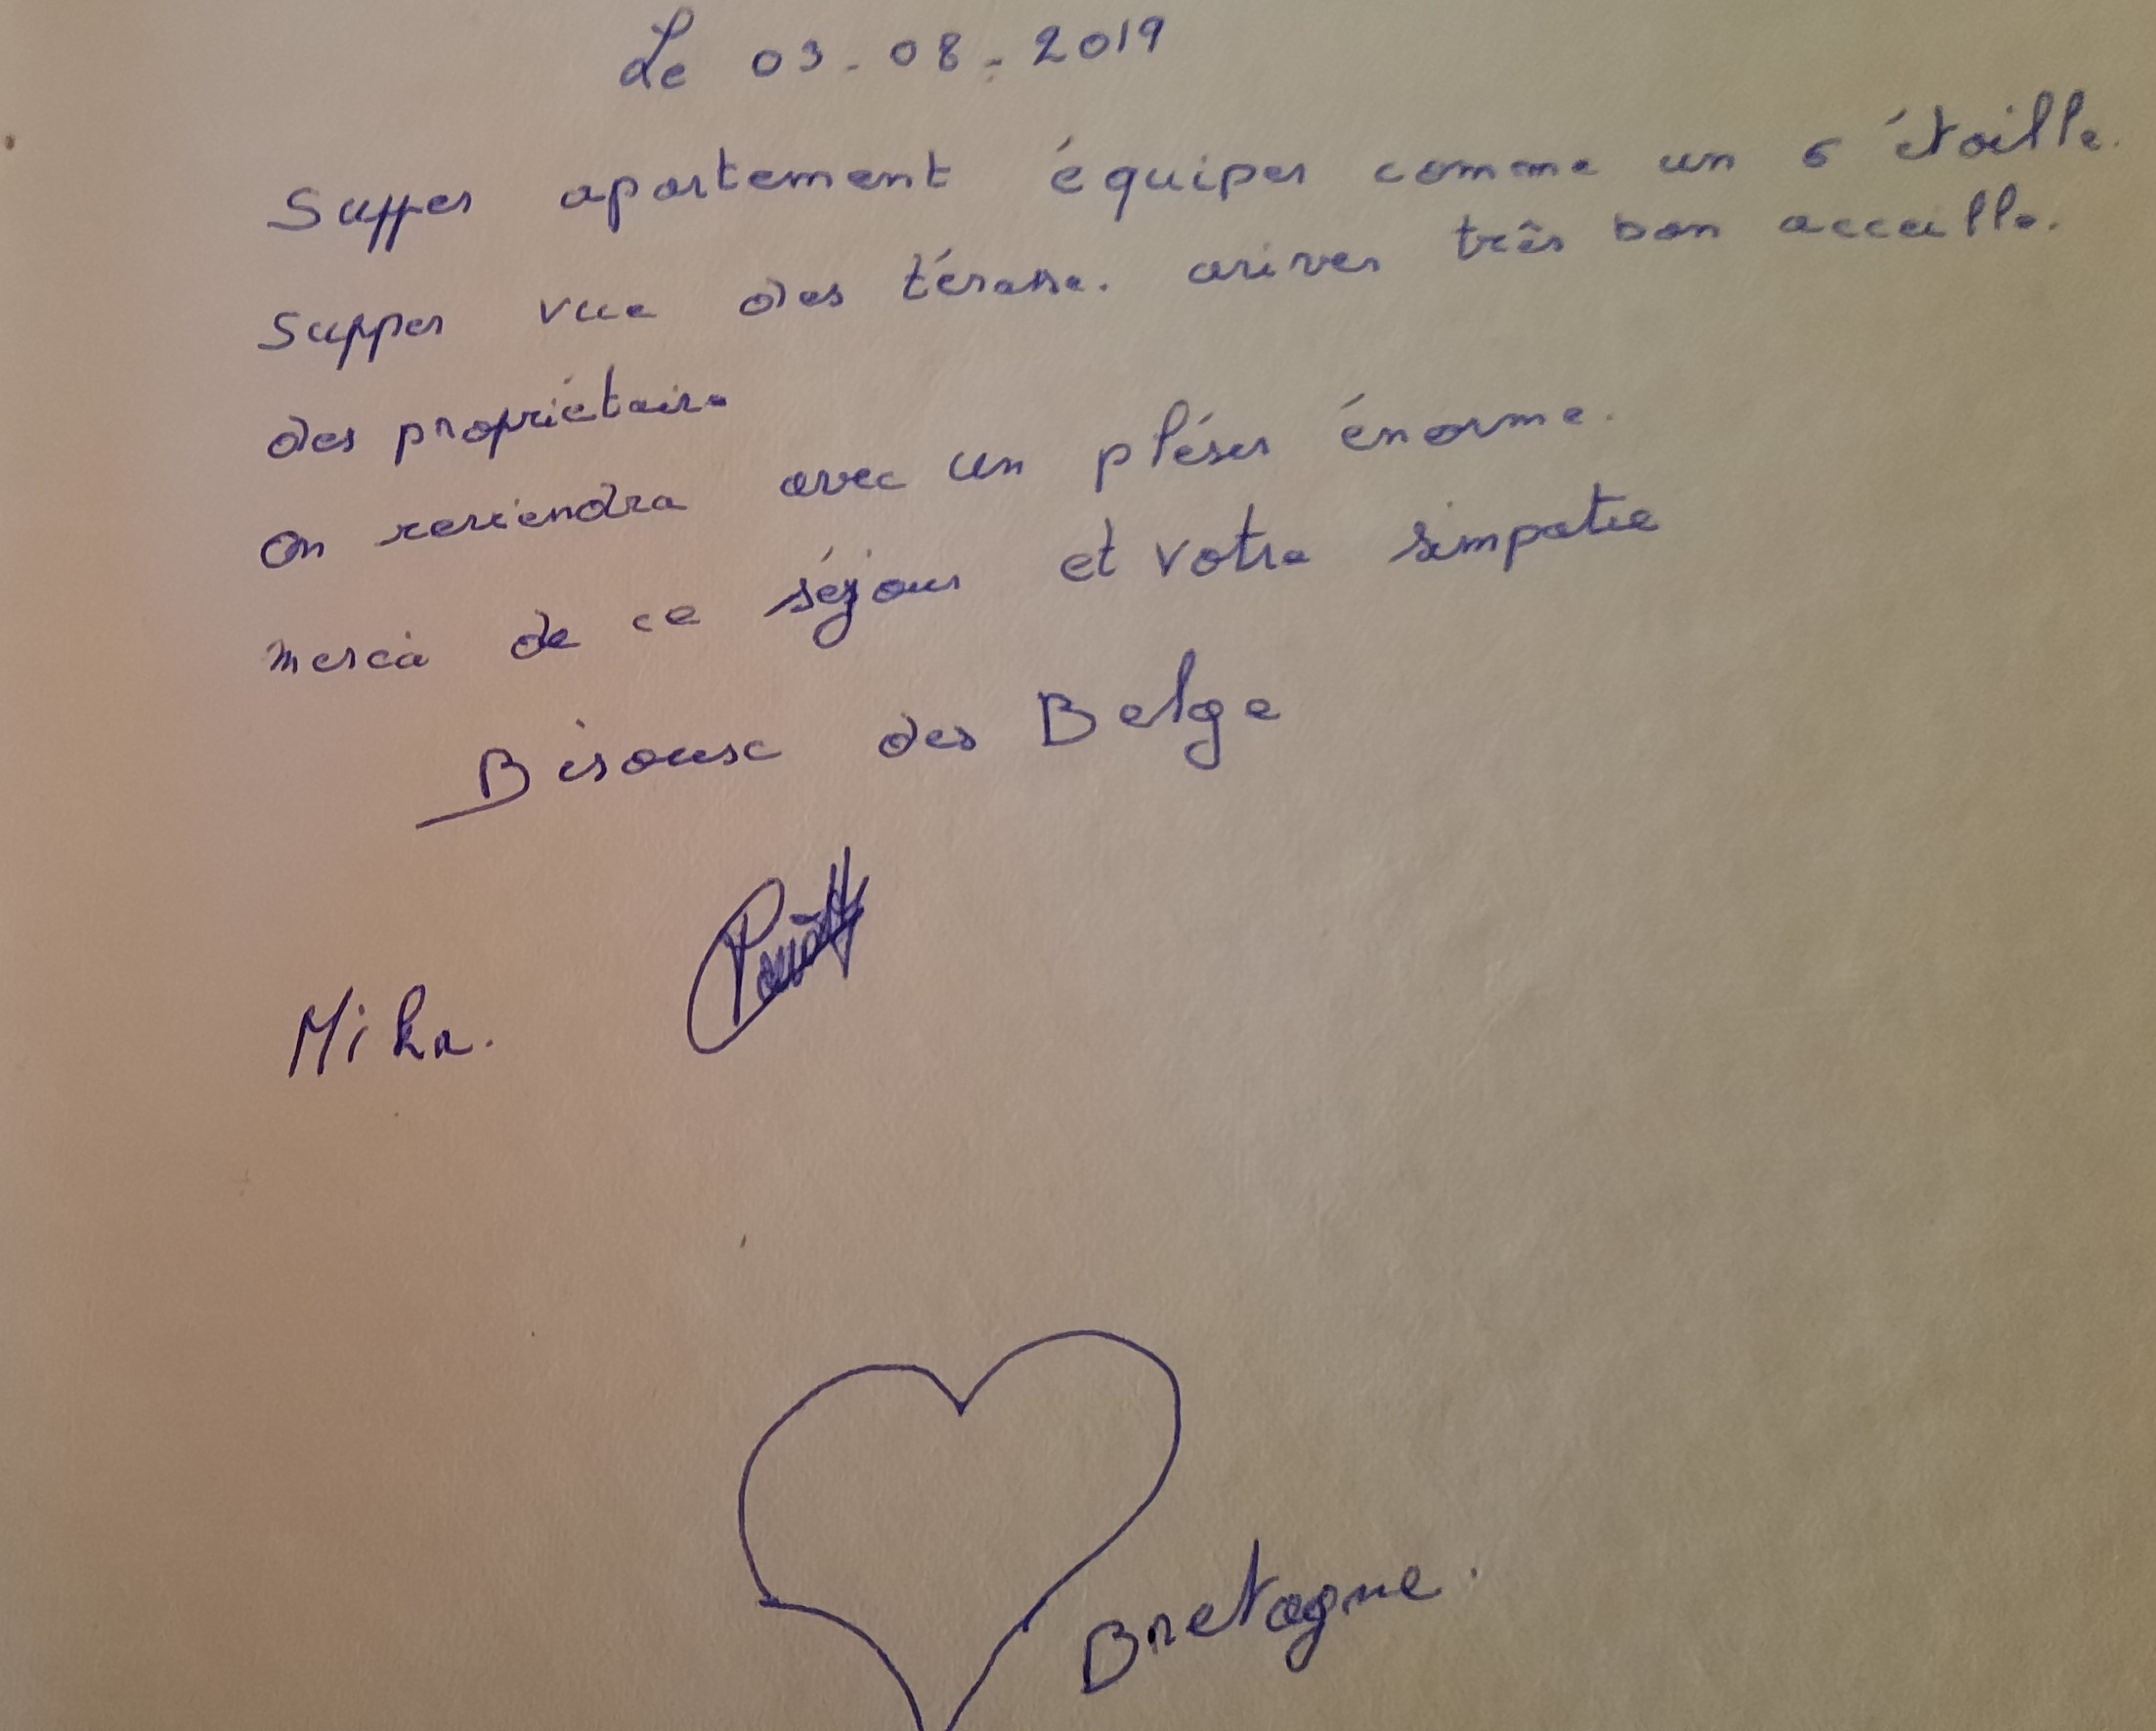 Le 03-08-2019
Supper apartement équiper comme un 5 étoille.
Supper vue des térasse. ariver très bon acceuille.
des propriétaire
On reviendra avec un plésir énorme.
merci de ce séjour et votre simpatie
Bisousc des Belge
Bretagne.